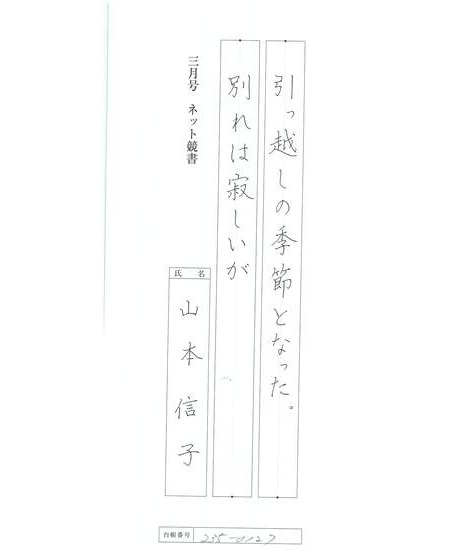 引っ越しの季節となった。
別れは寂しいが
三月号 ネット競書
氏名
山本信子
台帳番号 235-0127